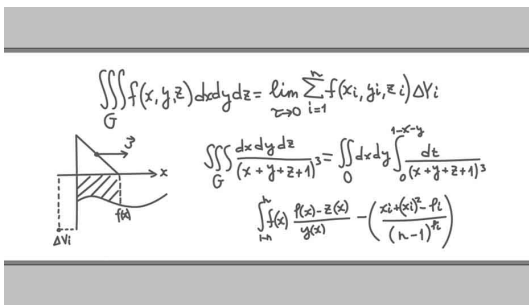 ∭_G f(x,y,z)dxdydz = lim_{τ→0} ∑_{i=1}^{n} f(xi,yi,zi)ΔVi
∭_G dxdydz/(x+y+z+1)³ = ∬_0 dxdy ∫_0^{1-x-y} dt/(x+y+z+1)³
x
f(x)
ΔVi
f(x) (f(x)-z(x))/y(x) - ((xi+(xi)²-fi)/(n-1)^{fi})